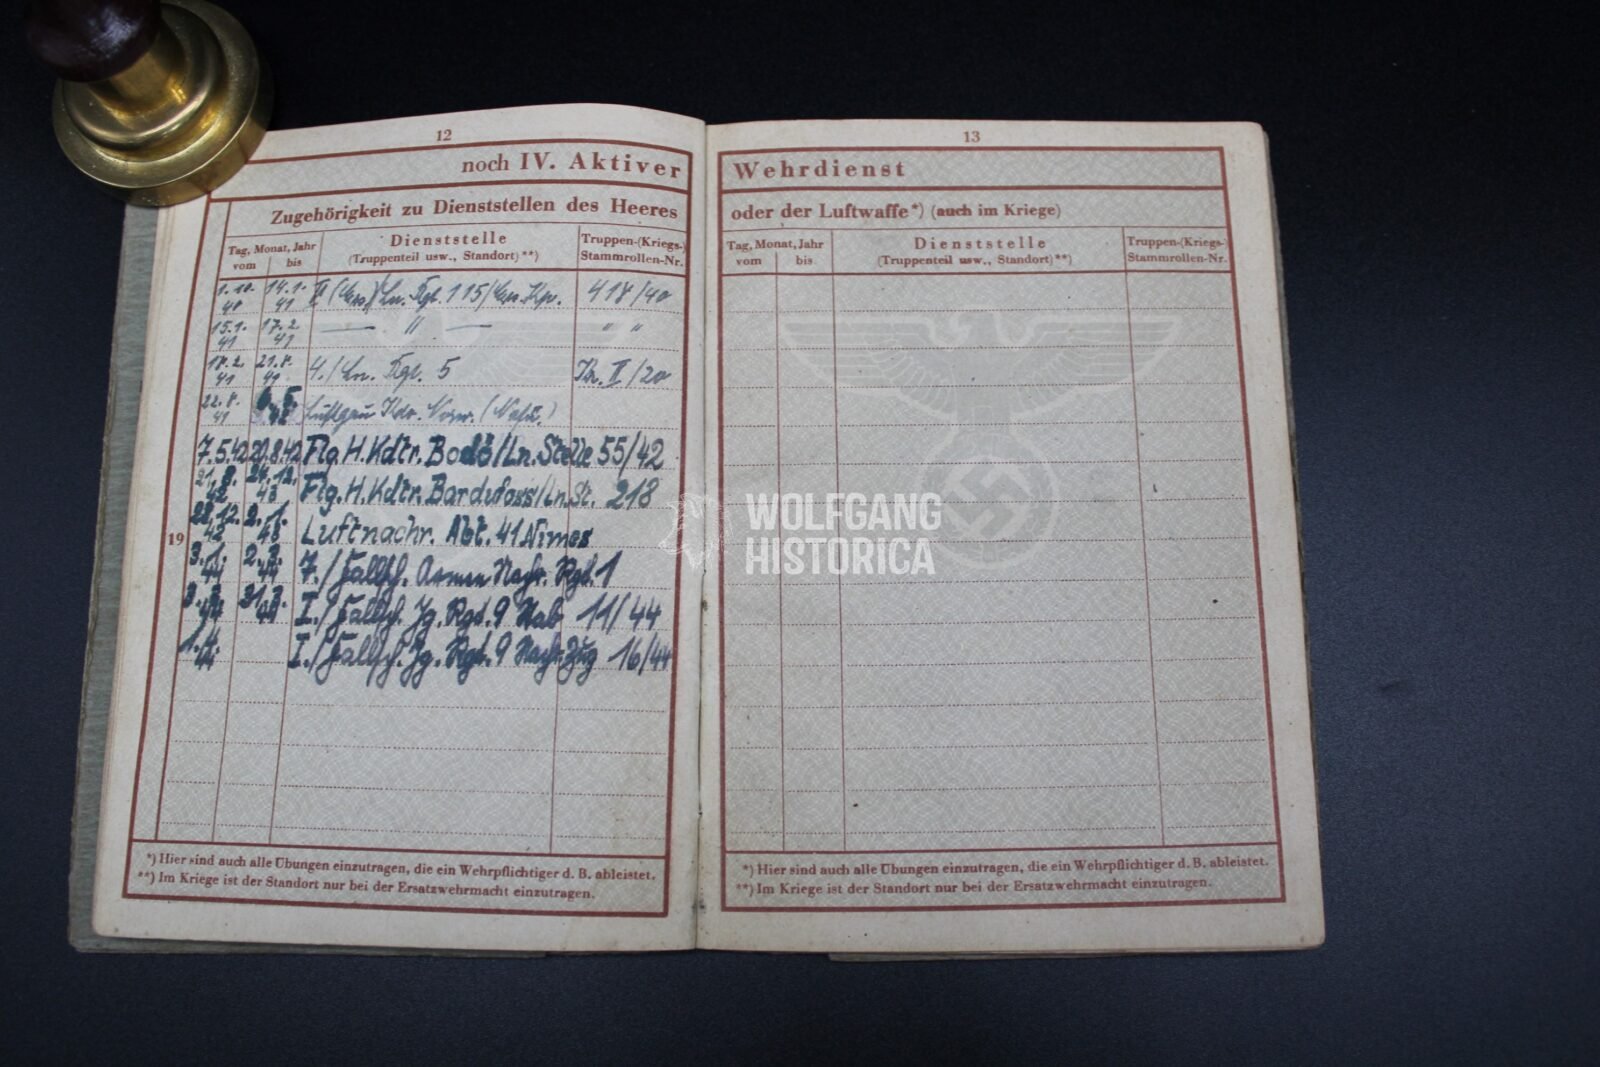 12
noch IV. Aktiver
Zugehörigkeit zu Dienststellen des Heeres
Tag, Monat, Jahr
vom bis
Dienststelle
(Truppenteil usw., Standort)**)
Truppen-(Kriegs-)
Stammrollen-Nr.
1.10. 40 14.1. 41 Ln. Rgt. 115/ 418/40
15.1. 41 17.2. 41 — " — " "
18.2. 41 21.8. 41 4./Ln. Rgt. 5 II/20
22.8. 41 6.5. 42 Luftgau Kdo. Norw.
7.5.42 20.8.42 Flg. H. Kdtr. Bodö/Ln. Stelle 55/42
21.8. 42 Flg. H. Kdtr. Bardufoss/Ln. St. 218
19
Luftnachr. Abt. 41 Nimes
3.1. 44 2.3. 44 7./Fallsch. Armee Nachr. Rgt. 1
I./Fallsch. Jg. Rgt. 9 Stab 11/44
1.4. 44 I./Fallsch. Jg. Rgt. 9 Nachr. Zug 16/44
*) Hier sind auch alle Übungen einzutragen, die ein Wehrpflichtiger d. B. ableistet.
**) Im Kriege ist der Standort nur bei der Ersatzwehrmacht einzutragen.
13
Wehrdienst
oder der Luftwaffe*) (auch im Kriege)
Tag, Monat, Jahr
vom bis
Dienststelle
(Truppenteil usw., Standort)**)
Truppen-(Kriegs-)
Stammrollen-Nr.
*) Hier sind auch alle Übungen einzutragen, die ein Wehrpflichtiger d. B. ableistet.
**) Im Kriege ist der Standort nur bei der Ersatzwehrmacht einzutragen.
WOLFGANG
HISTORICA